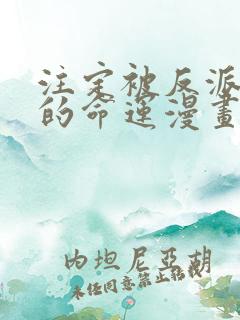 注定被反派
的命运漫畫
内坦尼亞胡
未任同意禁止转载